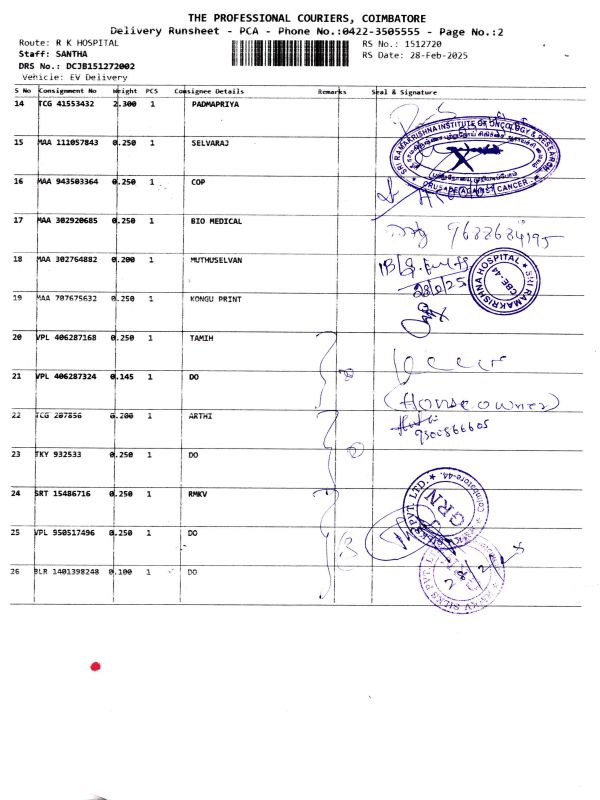 THE PROFESSIONAL COURIERS, COIMBATORE
Delivery Runsheet - PCA - Phone No.:0422-3505555 - Page No.:2
Route: R K HOSPITAL RS No.: 1512720
Staff: SANTHA RS Date: 28-Feb-2025
DRS No.: DCJB151272002
Vehicle: EV Delivery
S No Consignment No Weight PCS Consignee Details Remarks Seal & Signature
14 TCG 41553432 2.300 1 PADMAPRIYA
SRI RAMAKRISHNA INSTITUTE OF ONCOLOGY & RESEARCH
CRUSADE AGAINST CANCER
15 MAA 111057843 0.250 1 SELVARAJ
16 MAA 943503364 0.250 1 COP
17 MAA 302920685 0.250 1 BIO MEDICAL
18 MAA 302764882 0.200 1 MUTHUSELVAN
SRI RAMAKRISHNA HOSPITAL
CBE-44
19 MAA 707675632 0.250 1 KONGU PRINT
20 VPL 406287168 0.250 1 TAMIH
21 VPL 406287324 0.145 1 DO
(House owner)
22 TCG 207856 0.200 1 ARTHI
23 TKY 932533 0.250 1 DO
24 SRT 15486716 0.250 1 RMKV
GRN
Coimbatore-44.
25 VPL 950517496 0.250 1 DO
26 BLR 1401398248 0.100 1 DO
RMKV SILKS PVT. LTD.